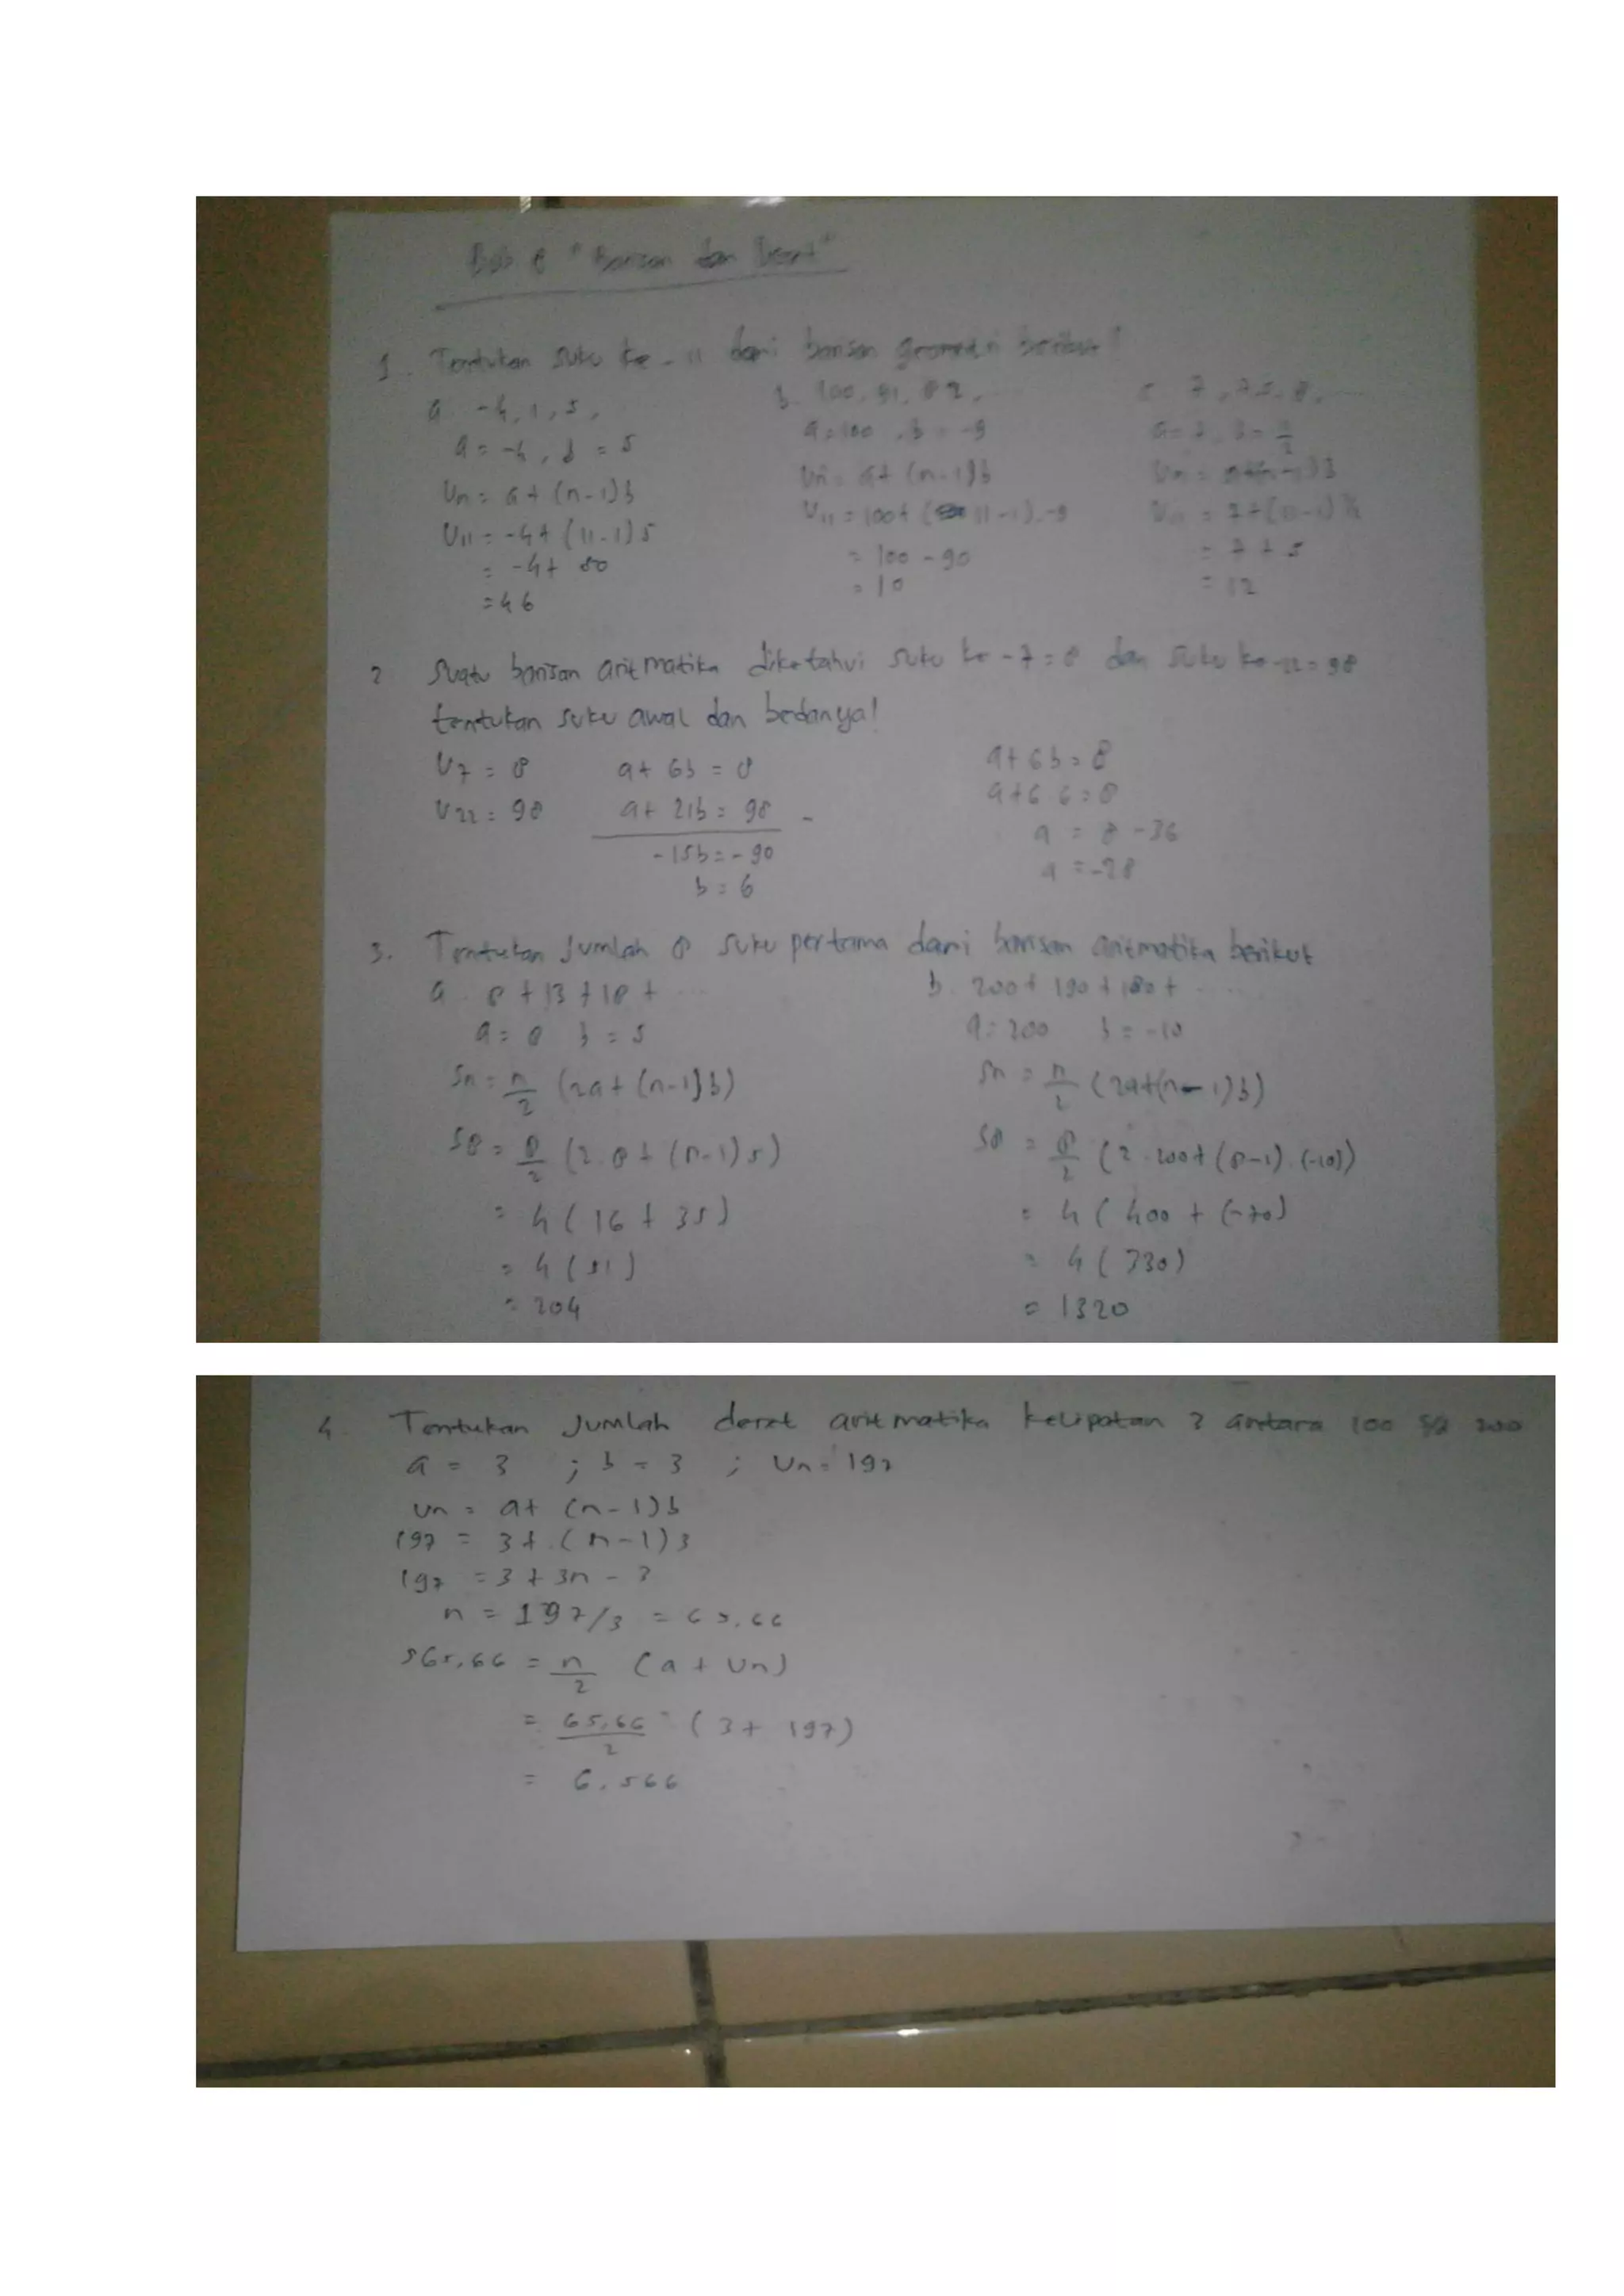 Bab 8 "Barisan dan Deret"
1. Tentukan suku ke-11 dari barisan geometri berikut!
a. -4, 1, 5,
a = -4, b = 5
Un = a + (n-1)b
U11 = -4 + (11-1)5
= -4 + 50
= 46
b. 100, 91, 82, ...
a = 100, b = -9
Un = a + (n-1)b
U11 = 100 + (11-1).-9
= 100 - 90
= 10
c. 7, 7.5, 8, ...
a = 7, b = 1/2
Un = a+(n-1)b
U11 = 7+(11-1)½
= 7 + 5
= 12
2. Suatu barisan aritmatika diketahui suku ke-7 = 8 dan suku ke-22 = 98
tentukan suku awal dan bedanya!
U7 = 8
U22 = 98
a + 6b = 8
a + 21b = 98 -
-15b = -90
b = 6
a + 6b = 8
a + 6 6 = 8
a = 8 - 36
a = -28
3. Tentukan jumlah 8 suku pertama dari barisan aritmatika berikut
a. 8 + 13 + 18 + ...
a = 8 b = 5
Sn = n/2 (2a + (n-1)b)
S8 = 8/2 (2.8 + (8-1)5)
= 4 (16 + 35)
= 4 (51)
= 204
b. 200 + 190 + 180 + ...
a = 200 b = -10
Sn = n/2 (2a+(n-1)b)
S8 = 8/2 (2.200 + (8-1).(-10))
= 4 (400 + (-70)
= 4 (330)
= 1320
4. Tentukan jumlah deret aritmatika kelipatan 3 antara 100 s/d 200
a = 3 ; b = 3 ; Un = 197
Un = a + (n-1)b
197 = 3 + (n-1)3
197 = 3 + 3n - 3
n = 197/3 = 65,66
S65,66 = n/2 (a + Un)
= 65,66/2 (3 + 197)
= 6.566